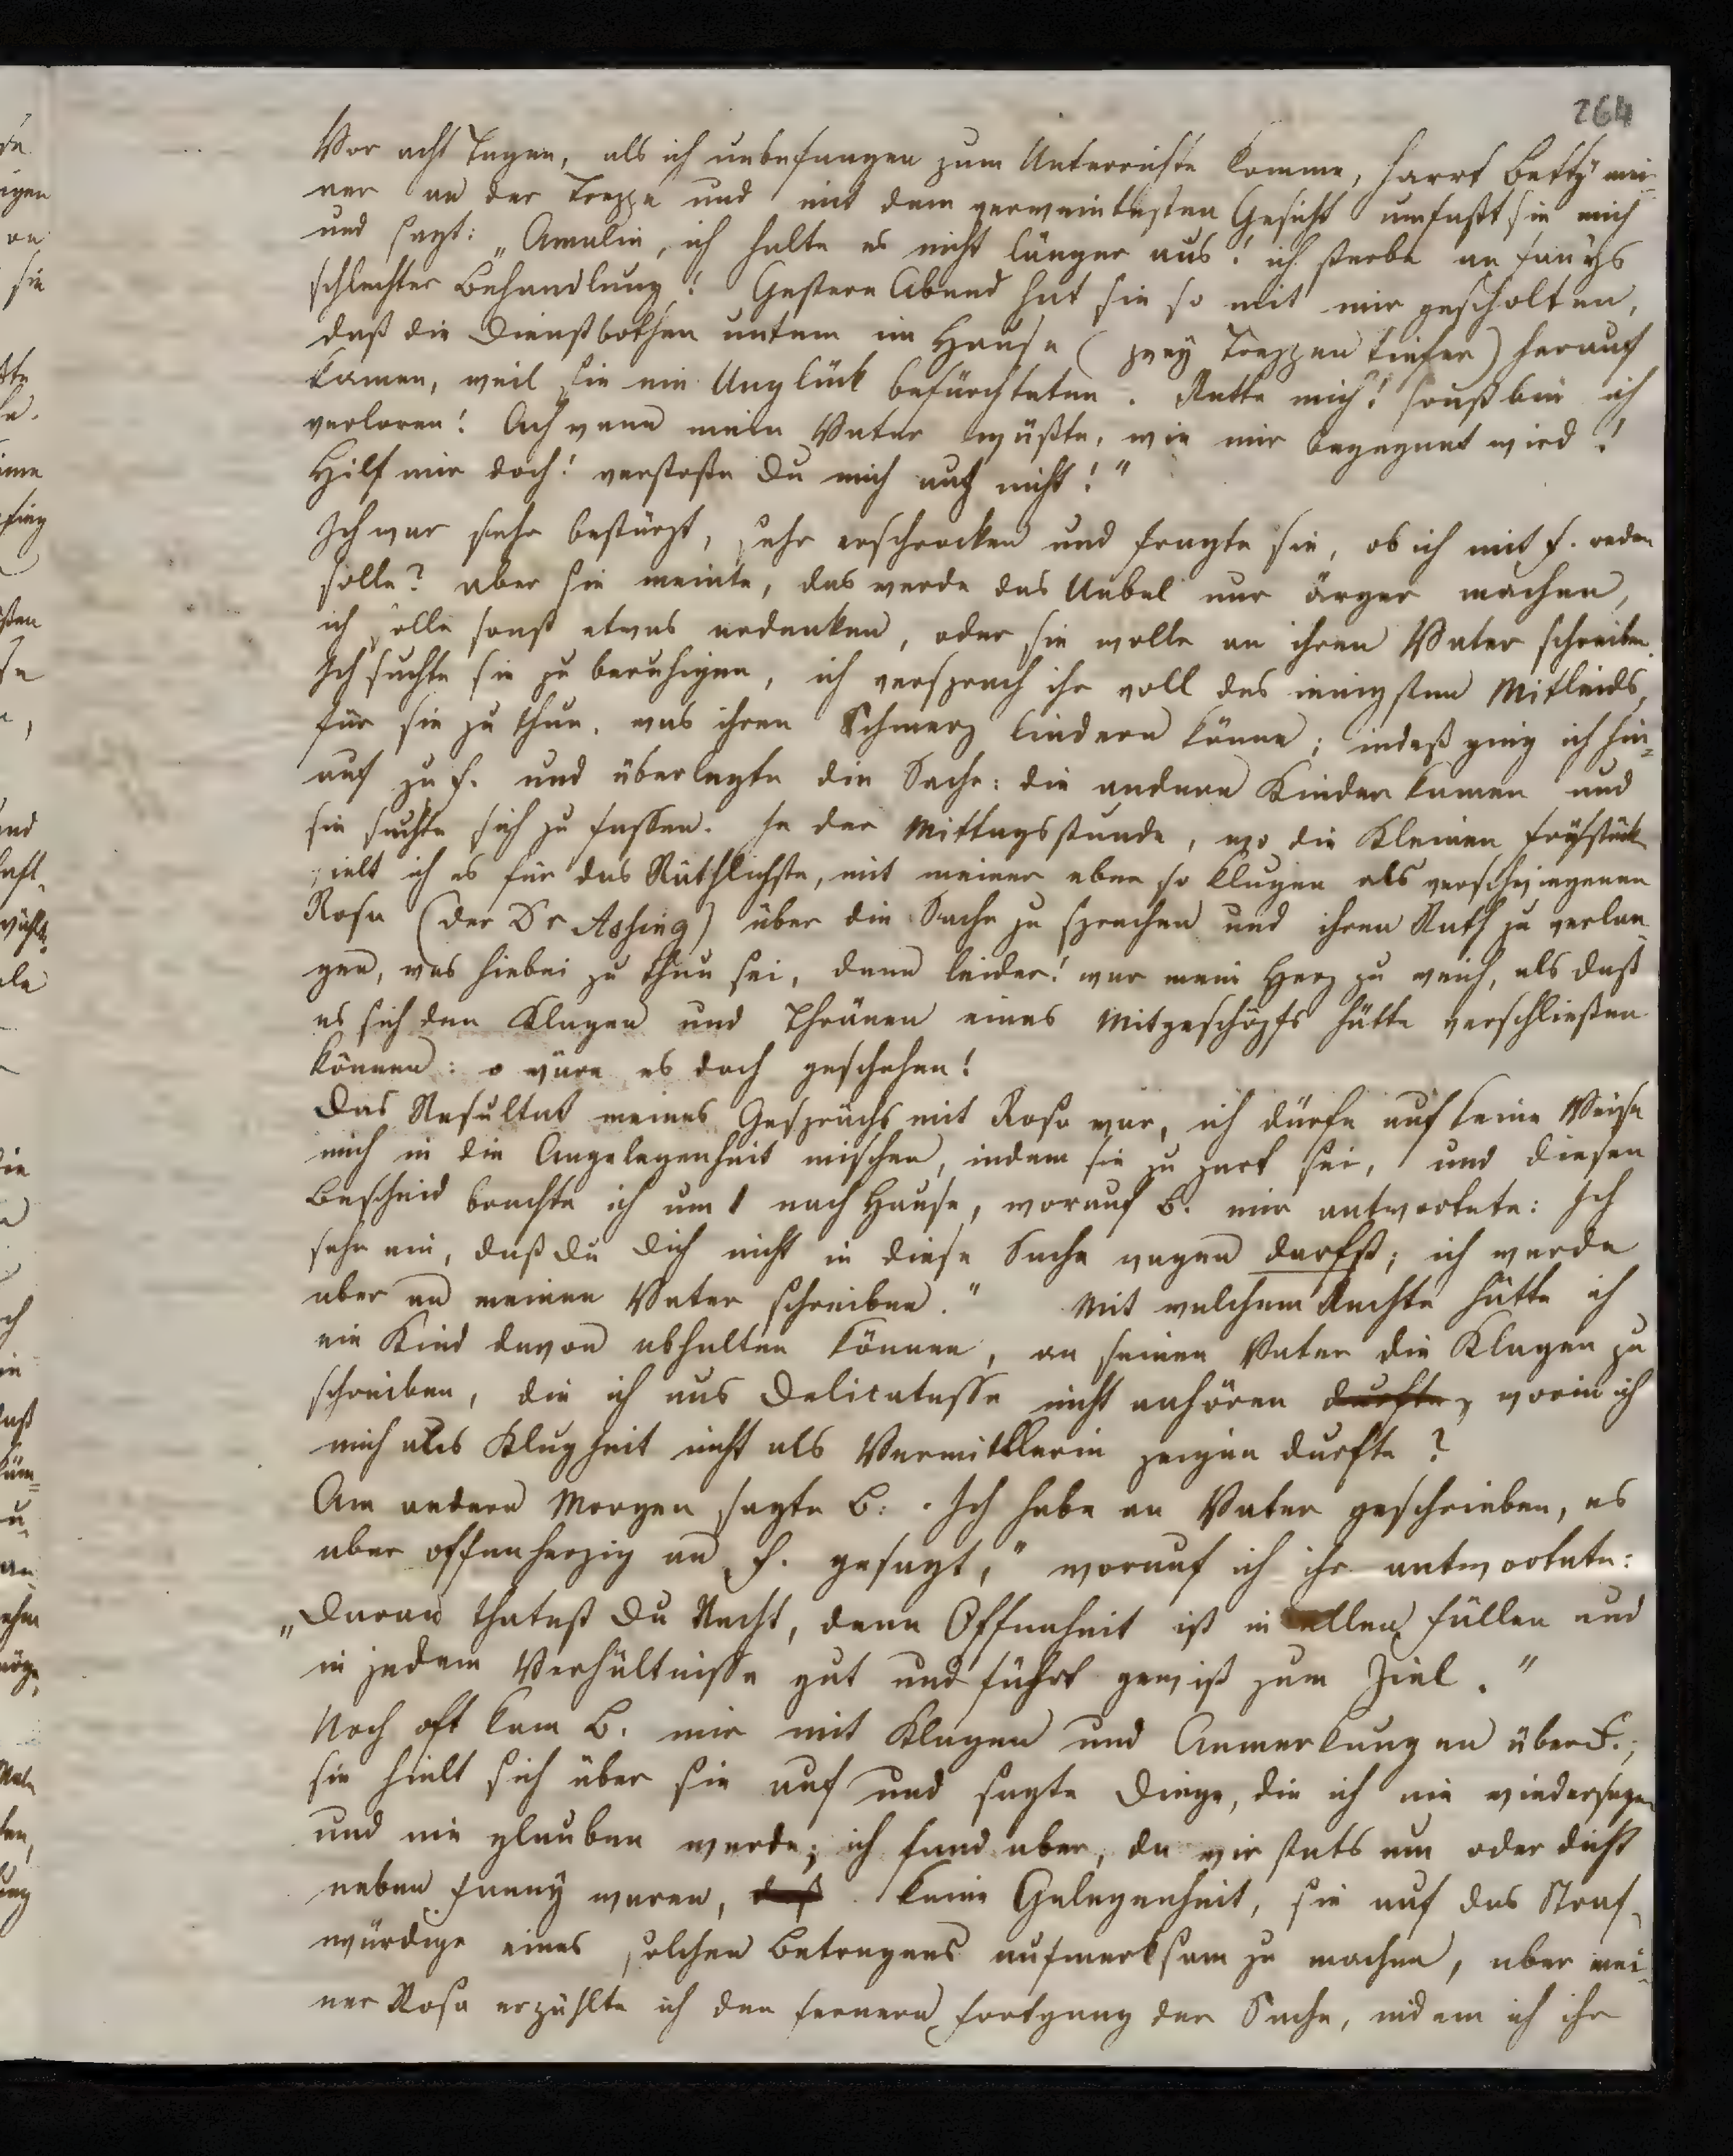 264
Vor acht Tagen, als ich unbefangen zum Unterrichte komme, harrt Betty mei-
ner an der Treppe und mit dem verweintesten Gesicht umfaßt sie mich
und sagt: „Amalie, ich halte es nicht länger aus! ich sterbe an Fannys
schlechter Behandlung! Gestern Abend hat sie so mit mir gescholten,
daß die Dienstbothen unten im Hause (zwey Treppen tiefer) herauf
kamen, weil sie ein Unglück befürchteten. Rette mich! sonst bin ich
verloren! Ach wenn mein Vater wüßte, wie mir begegnet wird!
Hilf mir doch! verstoße Du mich auch nicht!"
Ich war sehr bestürzt, sehr erschrocken und fragte sie, ob ich mit F. reden
solle? aber sie meinte, das werde das Uebel nur ärger machen,
ich solle sonst etwas erdenken, oder sie wolle an ihren Vater schreiben.
Ich suchte sie zu beruhigen, ich versprach ihr voll des innigsten Mitleids,
für sie zu thun, was ihren Schmerz lindern könne; indeß ging ich hin-
auf zu F. und überlegte die Sache: die andern Kinder kamen und
sie suchte sich zu fassen. In der Mittagsstunde, wo die Kleinen frühstück
hielt ich es für das Räthlichste, mit meiner eben so klugen als verschwiegenen
Rosa (der Dr Assing) über die Sache zu sprechen und ihren Rath zu verlan-
gen, was hiebei zu thun sei, denn leider! war mein Herz zu weich, als daß
es sich den Klagen und Thränen eines Mitgeschöpfs hätte verschließen
können: o wäre es doch geschehen!
Das Resultat meines Gesprächs mit Rosa war, ich dürfe auf keine Weise
mich in die Angelegenheit mischen, indem sie zu zart sei, und diesen
Bescheid brachte ich um 1 nach Hause, worauf B. mir antwortete: Ich
sehe ein, daß Du Dich nicht in diese Sache wagen darfst; ich werde
aber an meinen Vater schreiben." Mit welchem Rechte hätte ich
ein Kind davon abhalten können, an seinen Vater die Klagen zu
schreiben, die ich aus Delicatesse nicht anhören durfte, worin ich
mich aus Klugheit nicht als Vermittlerin zeigen durfte?
Am andern Morgen sagte B: „Ich habe an Vater geschrieben, es
aber offenherzig an F. gesagt," worauf ich ihr antwortete:
„Daran thatest Du Recht, denn Offenheit ist in allen Fällen und
in jedem Verhältnisse gut und führt gewiß zum Ziel."
Noch oft kam B. mir mit Klagen und Anmerkungen über F.;
sie hielt sich über sie auf und sagte Dinge, die ich nie wiedersagen
und nie glauben werde; ich fand aber, da wir stets um oder dicht
neben Fanny waren, daß keine Gelegenheit, sie auf das Straf-
würdige eines solchen Betragens aufmerksam zu machen, aber mei-
ner Rosa erzählte ich den fernern Fortgang der Sache, indem ich ihr